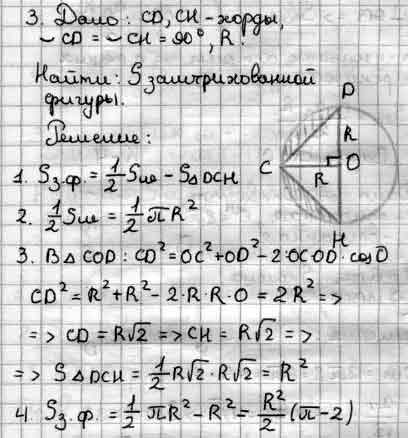 3. Дано: CD, CH - хорды,
◡CD = ◡CH = 90°, R.
Найти: S заштрихованной
фигуры.
Решение:
D
R
C
O
R
H
1. Sз.ф. = 1/2 Sш - S△DCH
2. 1/2 Sш = 1/2 πR²
3. В△COD: CD² = OC² + OD² - 2·OC·OD·cosO
CD² = R² + R² - 2·R·R·0 = 2R² =>
=> CD = R√2 => CH = R√2 =>
=> S△DCH = 1/2 R√2·R√2 = R²
4. Sз.ф. = 1/2 πR² - R² = R²/2 (π-2)